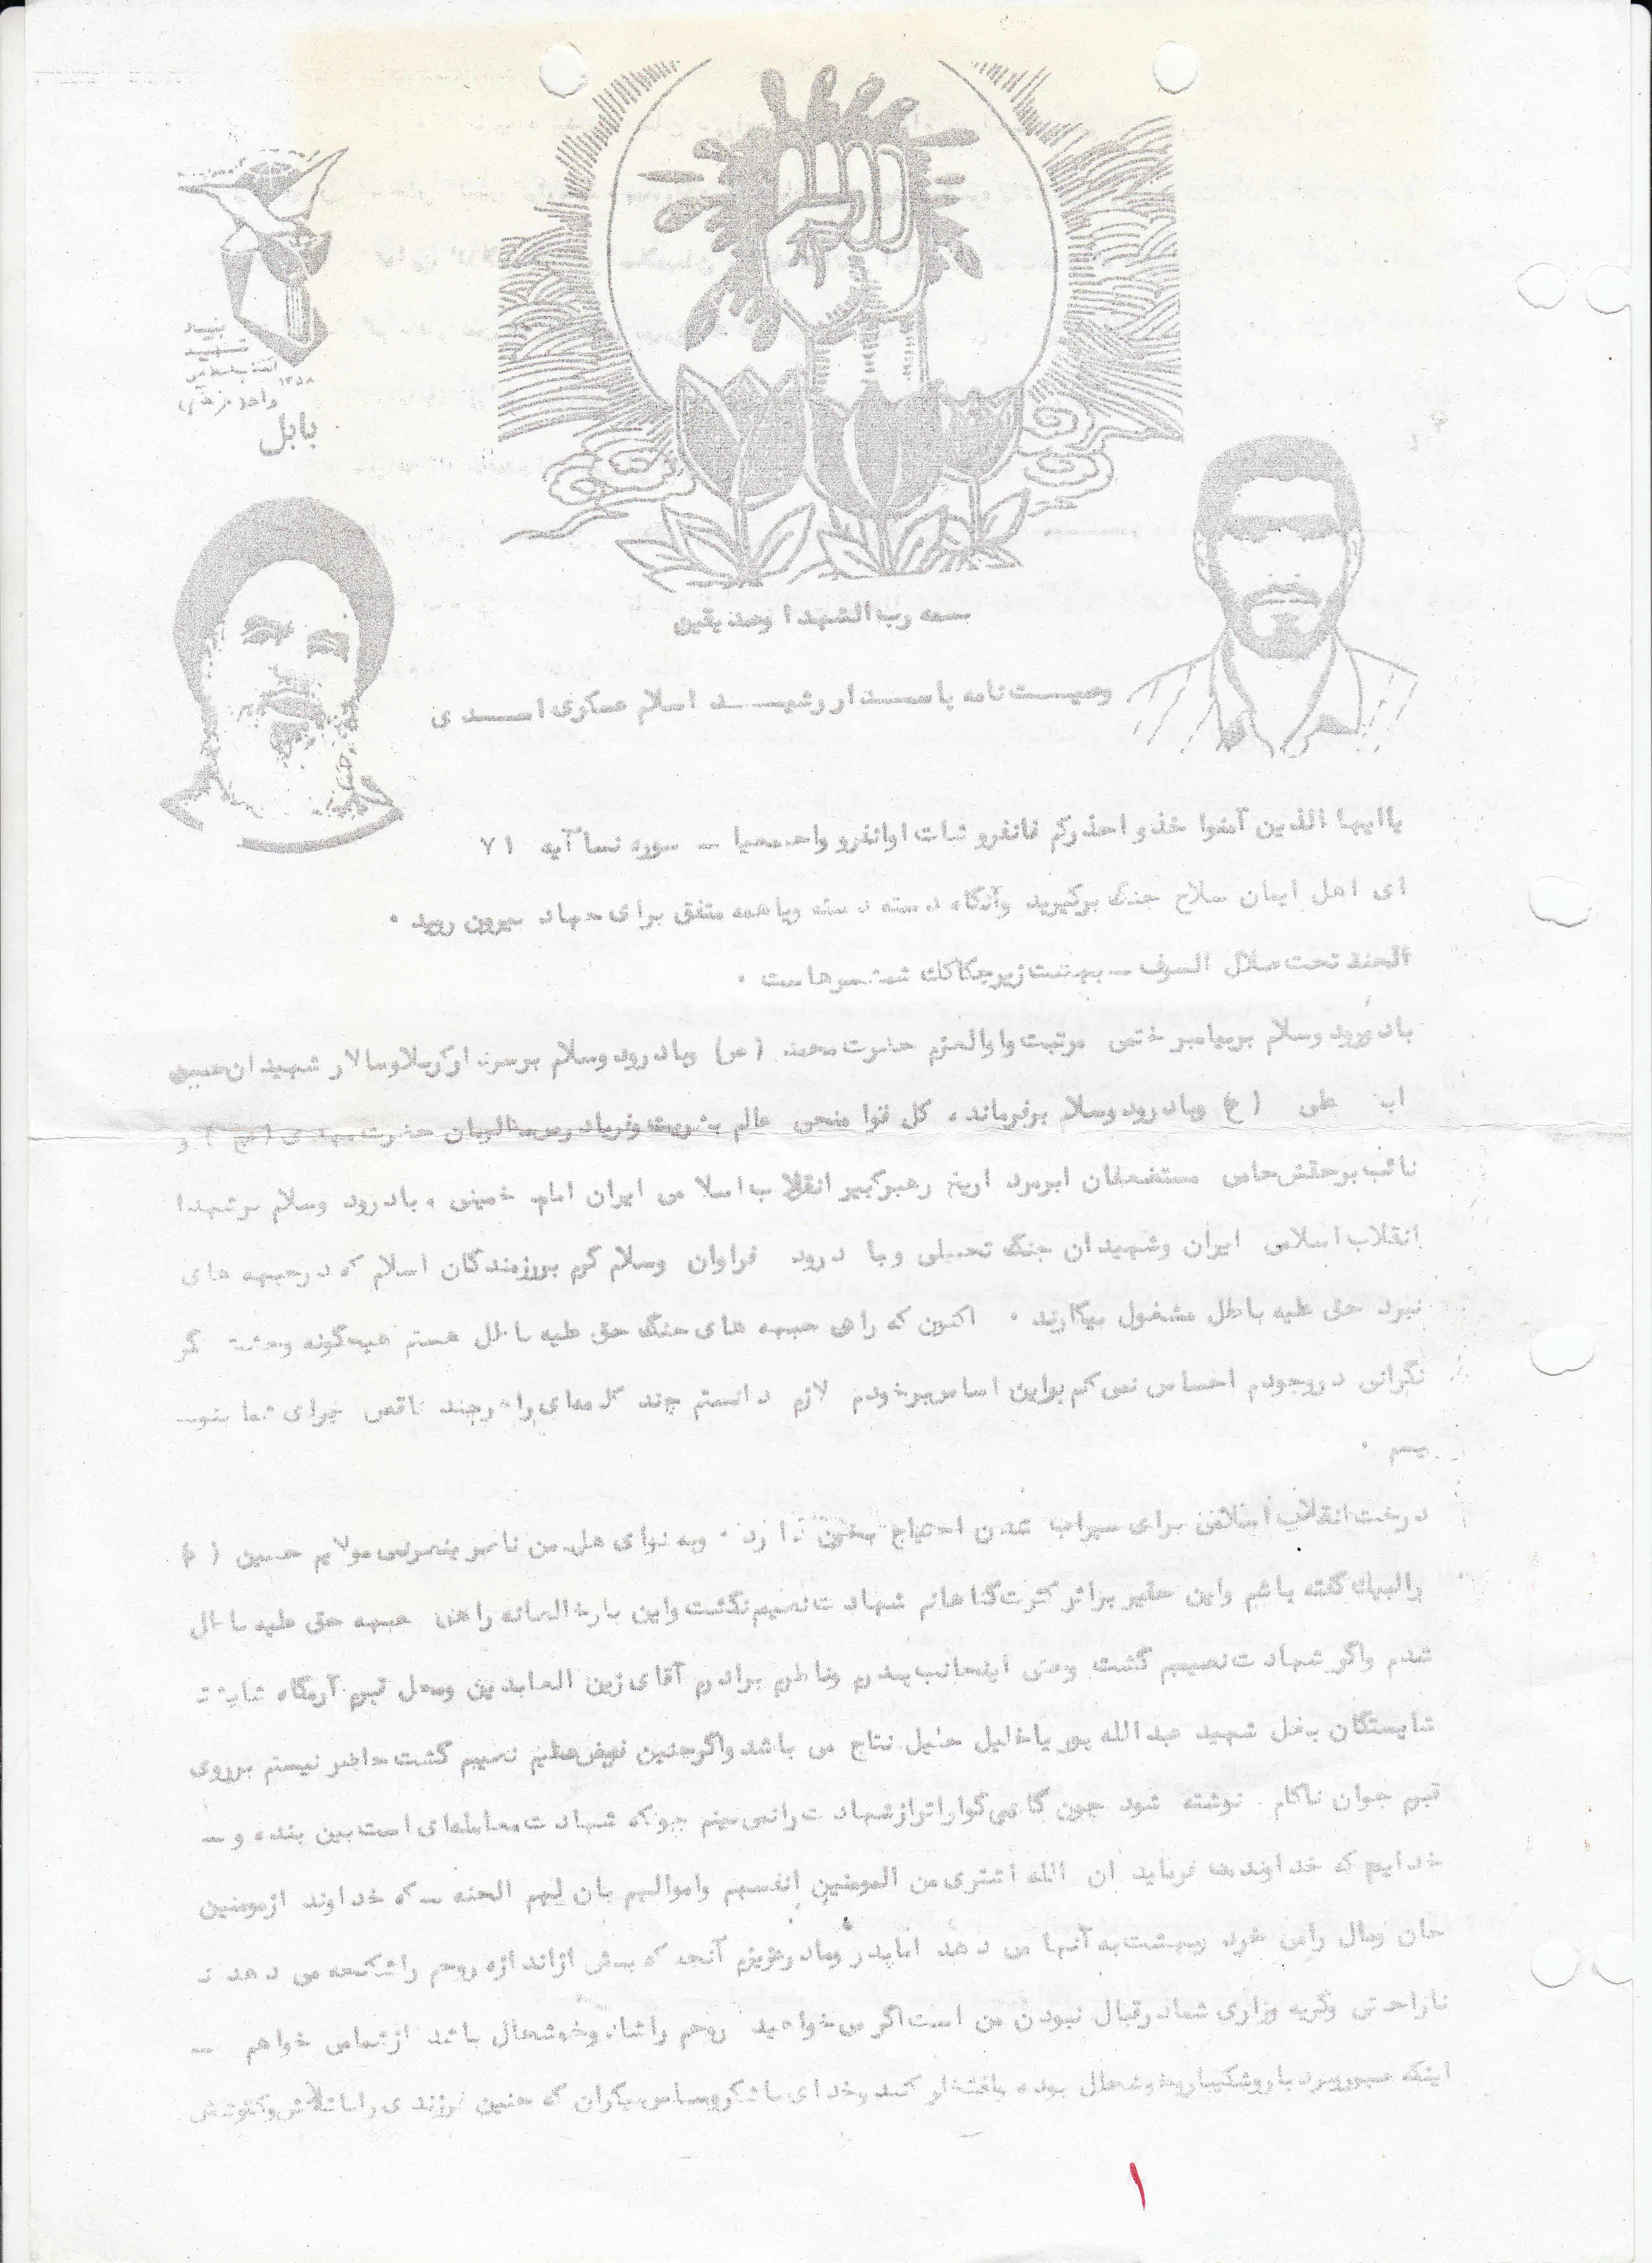 بنیاد
شهید
انقلاب اسلامی
۱۳۵۸
واحد فرهنگی
بابل
بسمه رب الشهدا وصدیقین
وصیت نامه پاسدار رشید اسلام عسکری اسدی
یاایها الذین آمنوا خذو احذرکم فانفرو ثبات اوانفرو واجمعیا – سوره نسا آیه ۷۱
ای اهل ایمان سلاح جنگ برگیرید وآنگاه دسته دسته ویاهمه متفق برای جهاد بیرون روید .
الجنة تحت ضلال السوف – بهشت زیرچکاکک شمشیرهاست .
بادرود وسلام برپیامبر ختمی مرتبت واوالعزم حضرت محمد (ص) وبادرود وسلام برسرور کربلاوسالار شهیدان حسین
ابن علی (ع) وبادرود وسلام برفرمانده کل قوا منجی عالم بشریت وفریادرس مظلومان حضرت مهدی (عج) و
نائب برحقش حامی مستضعفان ابرمرد تاریخ رهبرکبیر انقلاب اسلامی ایران امام خمینی . بادرود وسلام برشهدا
انقلاب اسلامی ایران وشهیدان جنگ تحمیلی وبا درود فراوان وسلام گرم برزمندگان اسلام که درجبهه های
نبرد حق علیه باطل مشغول پیکارند . اکنون که راهی جبهه های جنگ حق علیه باطل هستم هیچگونه وحشت
نگرانی دروجودم احساس نمی کنم براین اساس برخودم لازم دانستم چند کلمه‌ای راهرچند ناقص برای شما بنو–
یسم .
درخت انقلاب اسلامی برای سیراب شدن احتیاج بخون دارد . وبه نوای هل من ناصر ینصرنی مولایم حسین (ع)
رالبیک گفته باشم واین حقیر براثر کثرت گناهانم شهادت نصیبم نگشت واین بار خالصانه راهی جبهه حق علیه باطل
شدم واگر شهادت نصیبم گشت وصی اینجانب پدرم وناظرم برادرم آقای زین العابدین ومحل قبرم آرمگاه
شایستگان بغل شهید عبدالله پور یاخلیل خلیل نتاج می باشد واگرچنین فیض عظیم نصیبم گشت حاضر نیستم برروی
قبرم جوان ناکام نوشته شود چون کامی گواراتراز شهادت رانمی بینم چوکه شهادت معامله‌ای است بین بنده و –
خدایم که خداوند می فرماید ان الله اشتری من المومنین انفسهم واموالهم بان لهم الجنه – که خداوند ازمومنین
جان ومال رامی خرد وبهشت به آنها می دهد اماپدر ومادرعزیزم آنچه که بیش ازاندازه روحم راشکنجه می دهد
ناراحتی وگریه وزاری شمادرقبال نبودن من است اگر می خواهید روحم راشاد وخوشحال باشد ازشمامی خواهم –
اینکه صبوروبردباروشکیباروخوشحال بوده وافتخار کنید وخدای راشکروسپاس بگزاران که چنین فرزندی راباتلاش وکوشش
۱